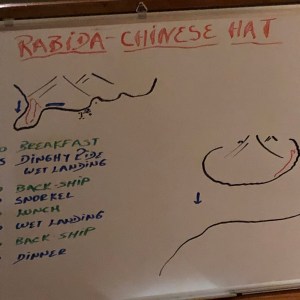 RABIDA-CHINESE HAT
BREAKFAST
DINGHY RIDE
WET LANDING
BACK-SHIP
SNORKEL
LUNCH
WET LANDING
BACK SHIP
DINNER